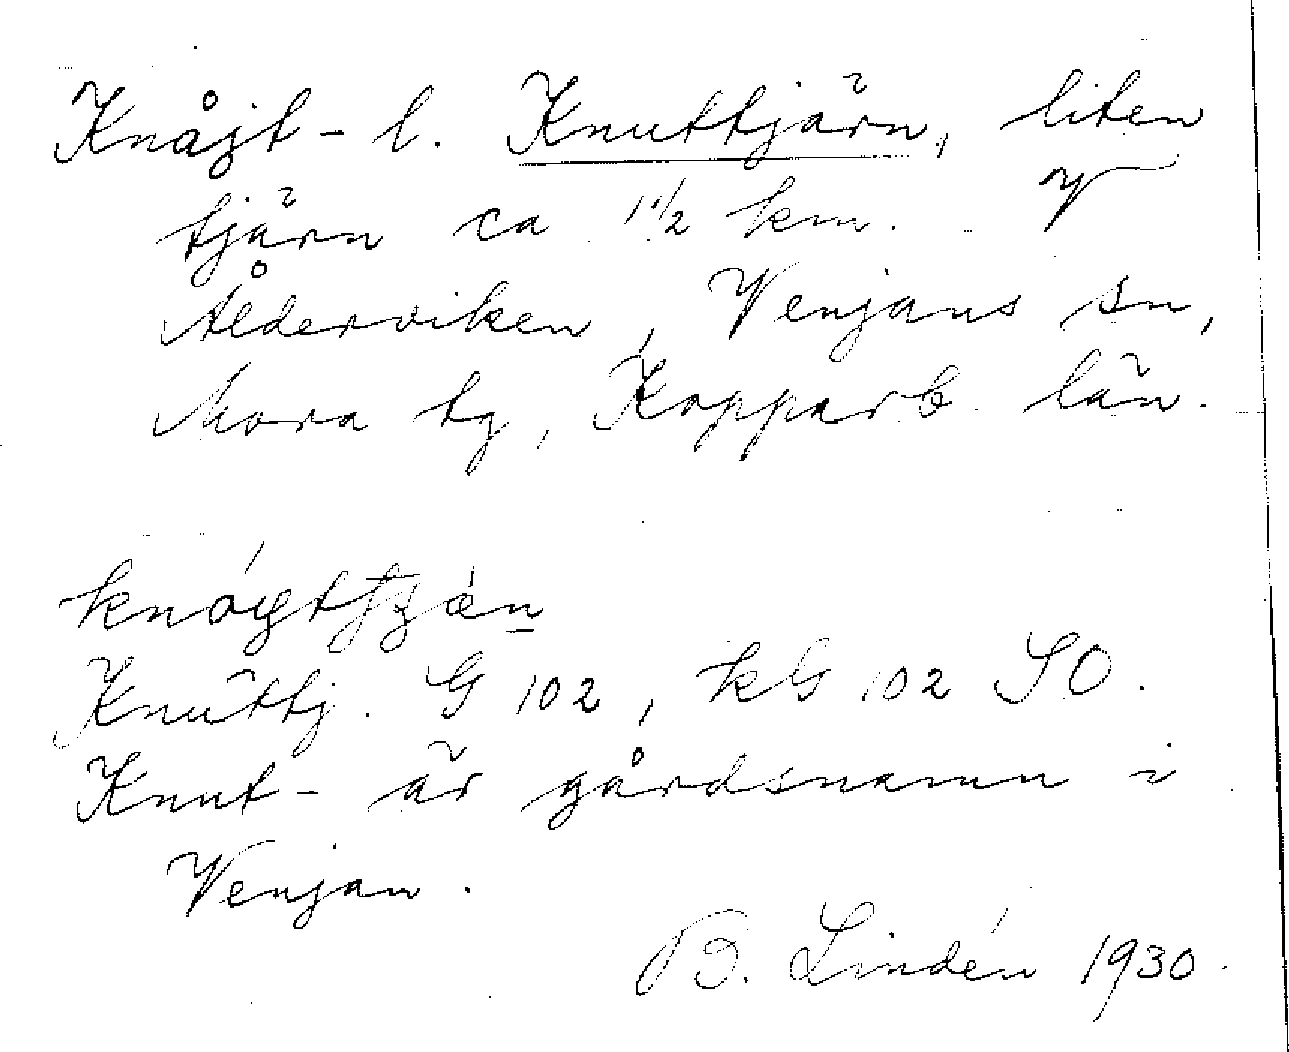 Knåjt- l. Knuttjärn, liten
tjärn ca 1 1/2 km. V
Ålderviken, Venjans sn,
Mora tg, Kopparb. län.
Knuttj. G 102, kG 102 SO.
Knut- är gårdsnamn i
Venjan.
B. Lindén 1930.